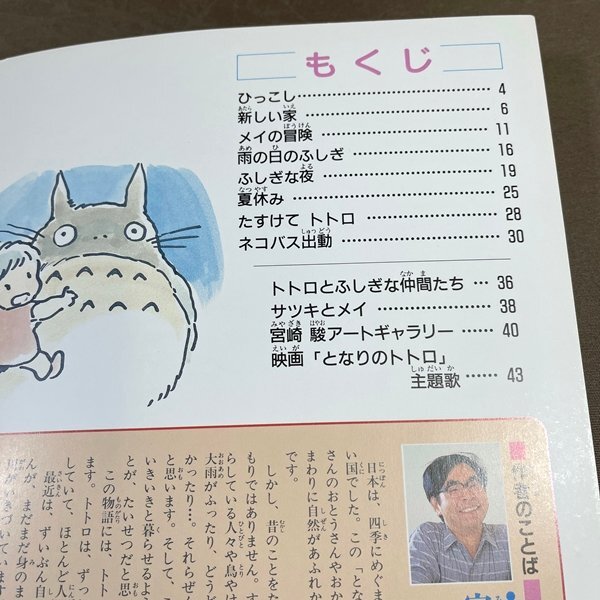 もくじ
ひっこし 4
新しい家 6
メイの冒険 11
雨の日のふしぎ 16
ふしぎな夜 19
夏休み 25
たすけて トトロ 28
ネコバス出動 30
トトロとふしぎな仲間たち 36
サツキとメイ 38
宮崎 駿アートギャラリー 40
映画「となりのトトロ」
主題歌 43
作者のことば
日本は、四季にめぐま
い国でした。この「とな
さんのおとうさんやおか
まわりに自然があふれか
です。
しかし、昔のことをた
もりではありません。す
らしている人々や鳥やけ
大雨がふったり、どうど
かったり…。それらぜん
と思います。そして、こ
いきいきと暮らせるよ
とが、たいせつだと思
この物語には、トト
ます。トトロは、ずっ
していて、ほとんど人
最近は、ずいぶん自
んが、まだまだ身のま